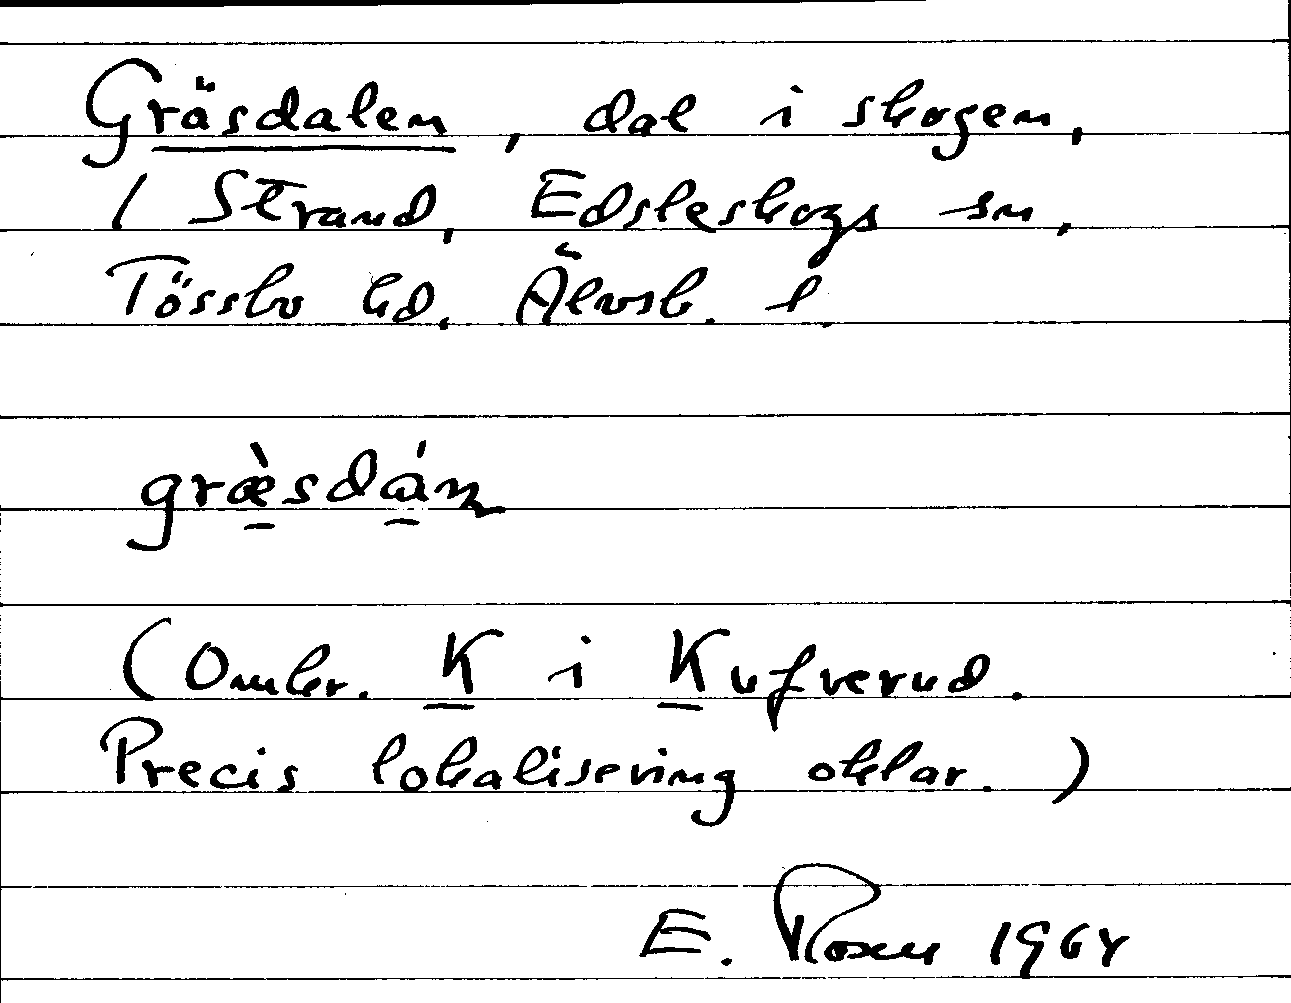 Gräsdalen, dal i skogen,
/ Strand, Edsleskogs sn,
Tössbo hd. Älvsb. l.
græ̀sdán
(Omkr. K i Kufverud.
Precis lokalisering oklar.)
E. Rosen 1964